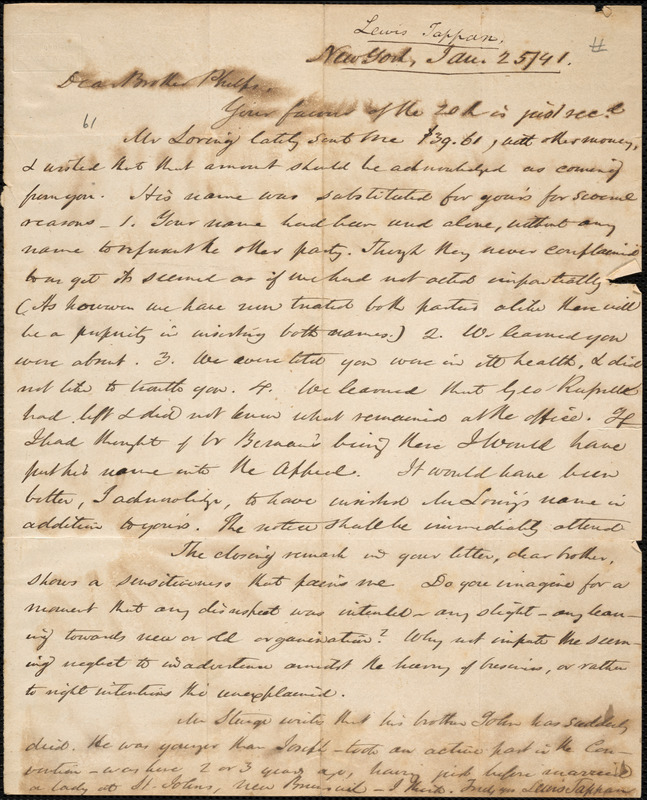 Lewis Tappan.
New York, Jan. 25/41.
#
Dear Brother Phelps,
Your favour of the 20th is just rec.d
61
Mr Loring lately sent me $39.61, with other money,
& wished that that amount should be acknowledged as coming
from you. His name was substituted for yours for several
reasons - 1. Your name had been used alone, without any
name to represent the other party. Though they never complained
to us yet it seemed as if we had not acted impartially -
(As however we have now treated both parties alike there will
be a propriety in inserting both names.) 2. We learned you
were absent. 3. We were told you were in ill health, & did
not like to trouble you. 4. We learned that Geo Russell
had left & did not know what remained at the office. If
I had thought of br being there I would have
put his name into the Appeal. It would have been
better, I acknowledge, to have inserted Mr Loring's name in
addition to yours. The notice shall be immediately attend
The closing remark in your letter, dear brother,
shows a sensitiveness that pains me. Do you imagine for a
moment that any disrespect was intended - any slight - any lean-
ing towards new or old organization? Why not impute the seem-
ing neglect to inadvertence amidst the hurry of business, or rather
to right intentions tho' unexplained.
Mr Sturge writes that his brother John has suddenly
died. He was younger than Joseph - took an active part in the Con-
vention - was here 2 or 3 years ago, having just before married
a lady at St. Johns, New Brunswick - I think. Lewis Tappan